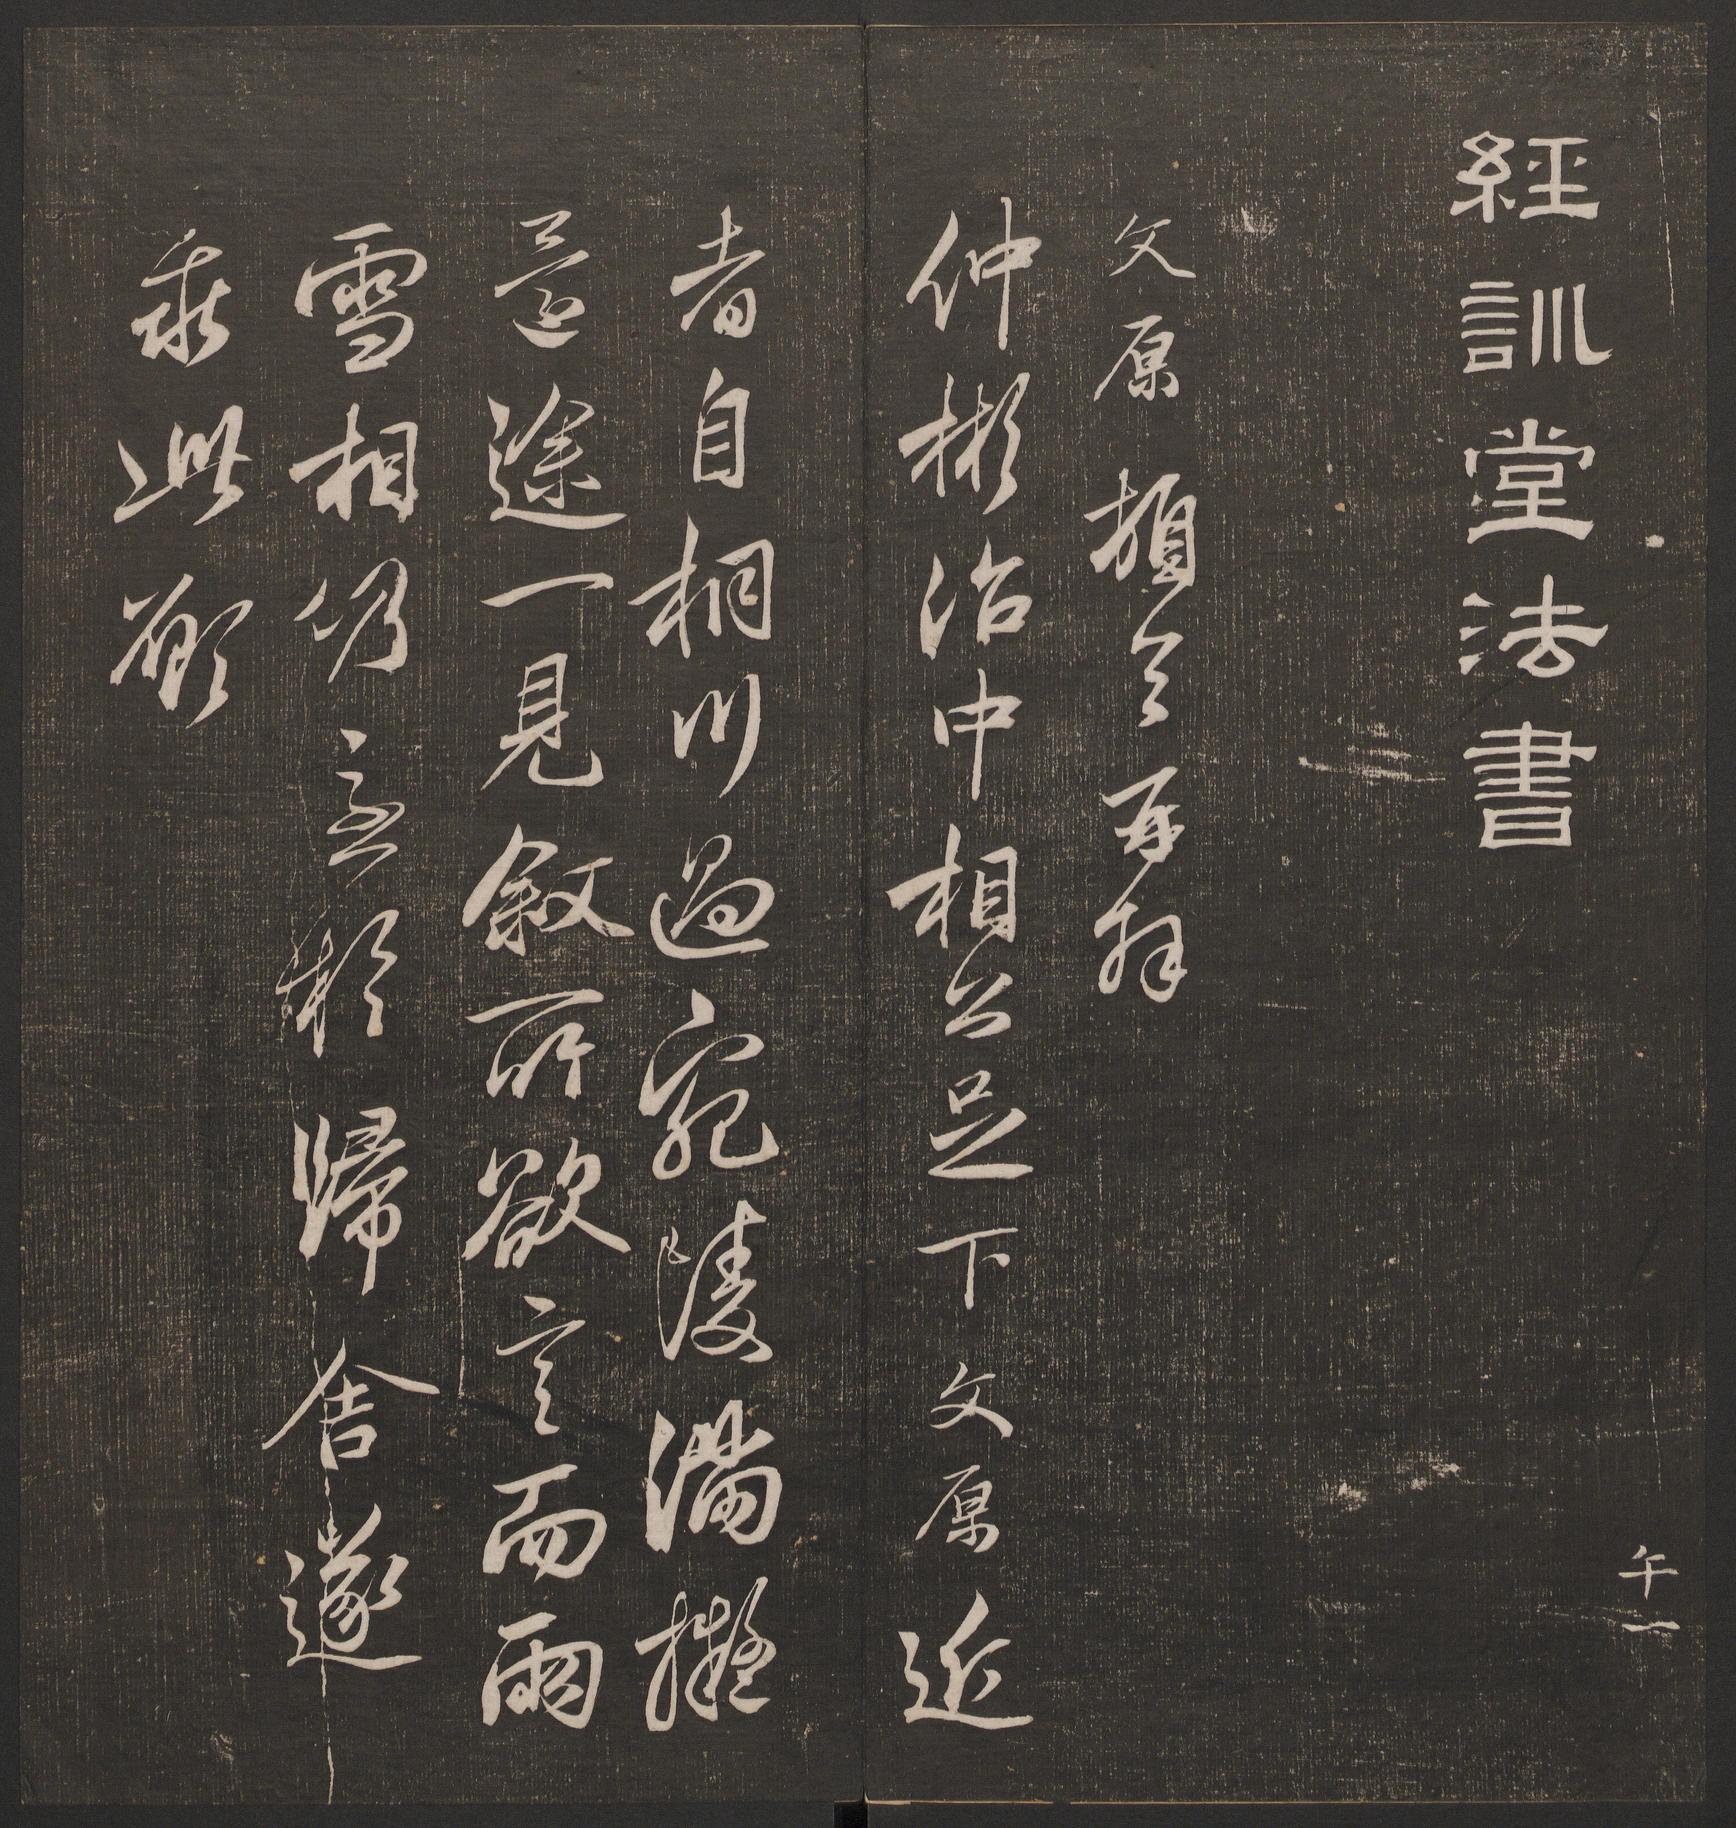 經訓堂法書
午一
文原頓首再拜
仲彬治中相公足下文原近
者自桐川過宛陵滿擬
道途一見敘所欲言而雨
雪相仍亟於歸舍遂
乖此願